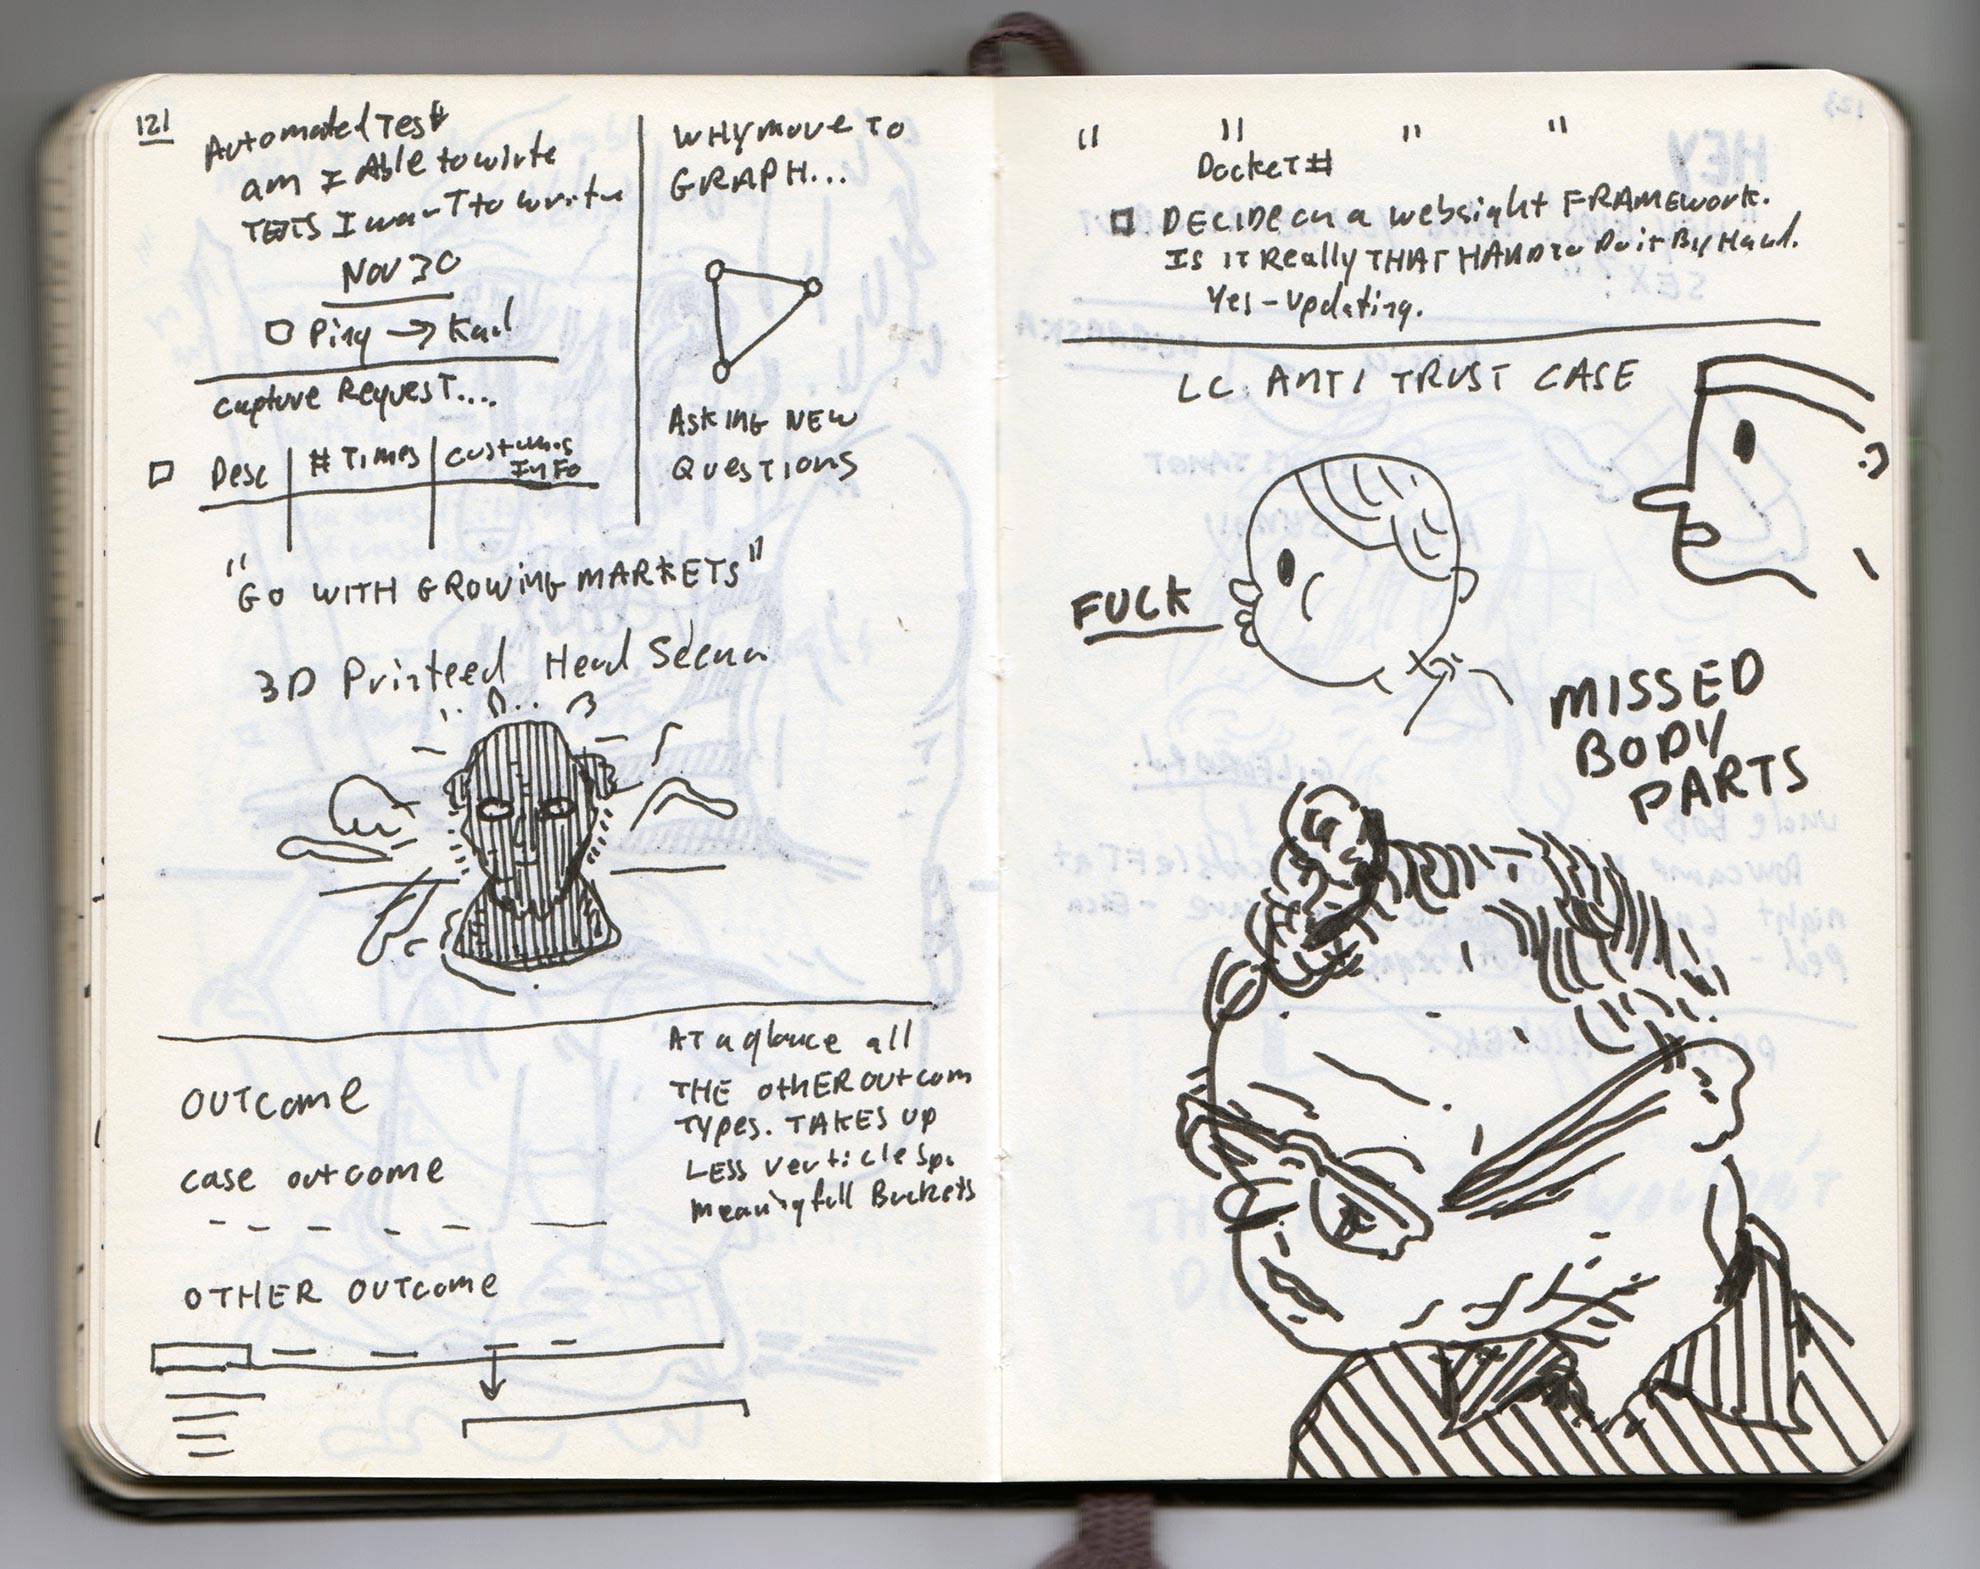 121
Automated Test
am I Able to wirte
TESTS I want to write
Nov 30
Ping → Karl
Capture Request....
Desc # Times customers
InFo
WHY move TO
GRAPH...
Asking NEW
Questions
"GO WITH GROWING MARKETS"
3D Printeed Head
OUTCOME
case outcome
OTHER OUTCOME
AT a glance all
THE OTHER OUTCOM
Types. TAKES up
LESS verticle Sp.
Meaningfull Buckets
" " " "
Docket #
DECIDE on a websight FRAMEWORK.
Is it Really THAT HARD to Do it By Hand.
Yes - updating.
LC ANTI TRUST CASE
FUCK
MISSED
BODY
PARTS